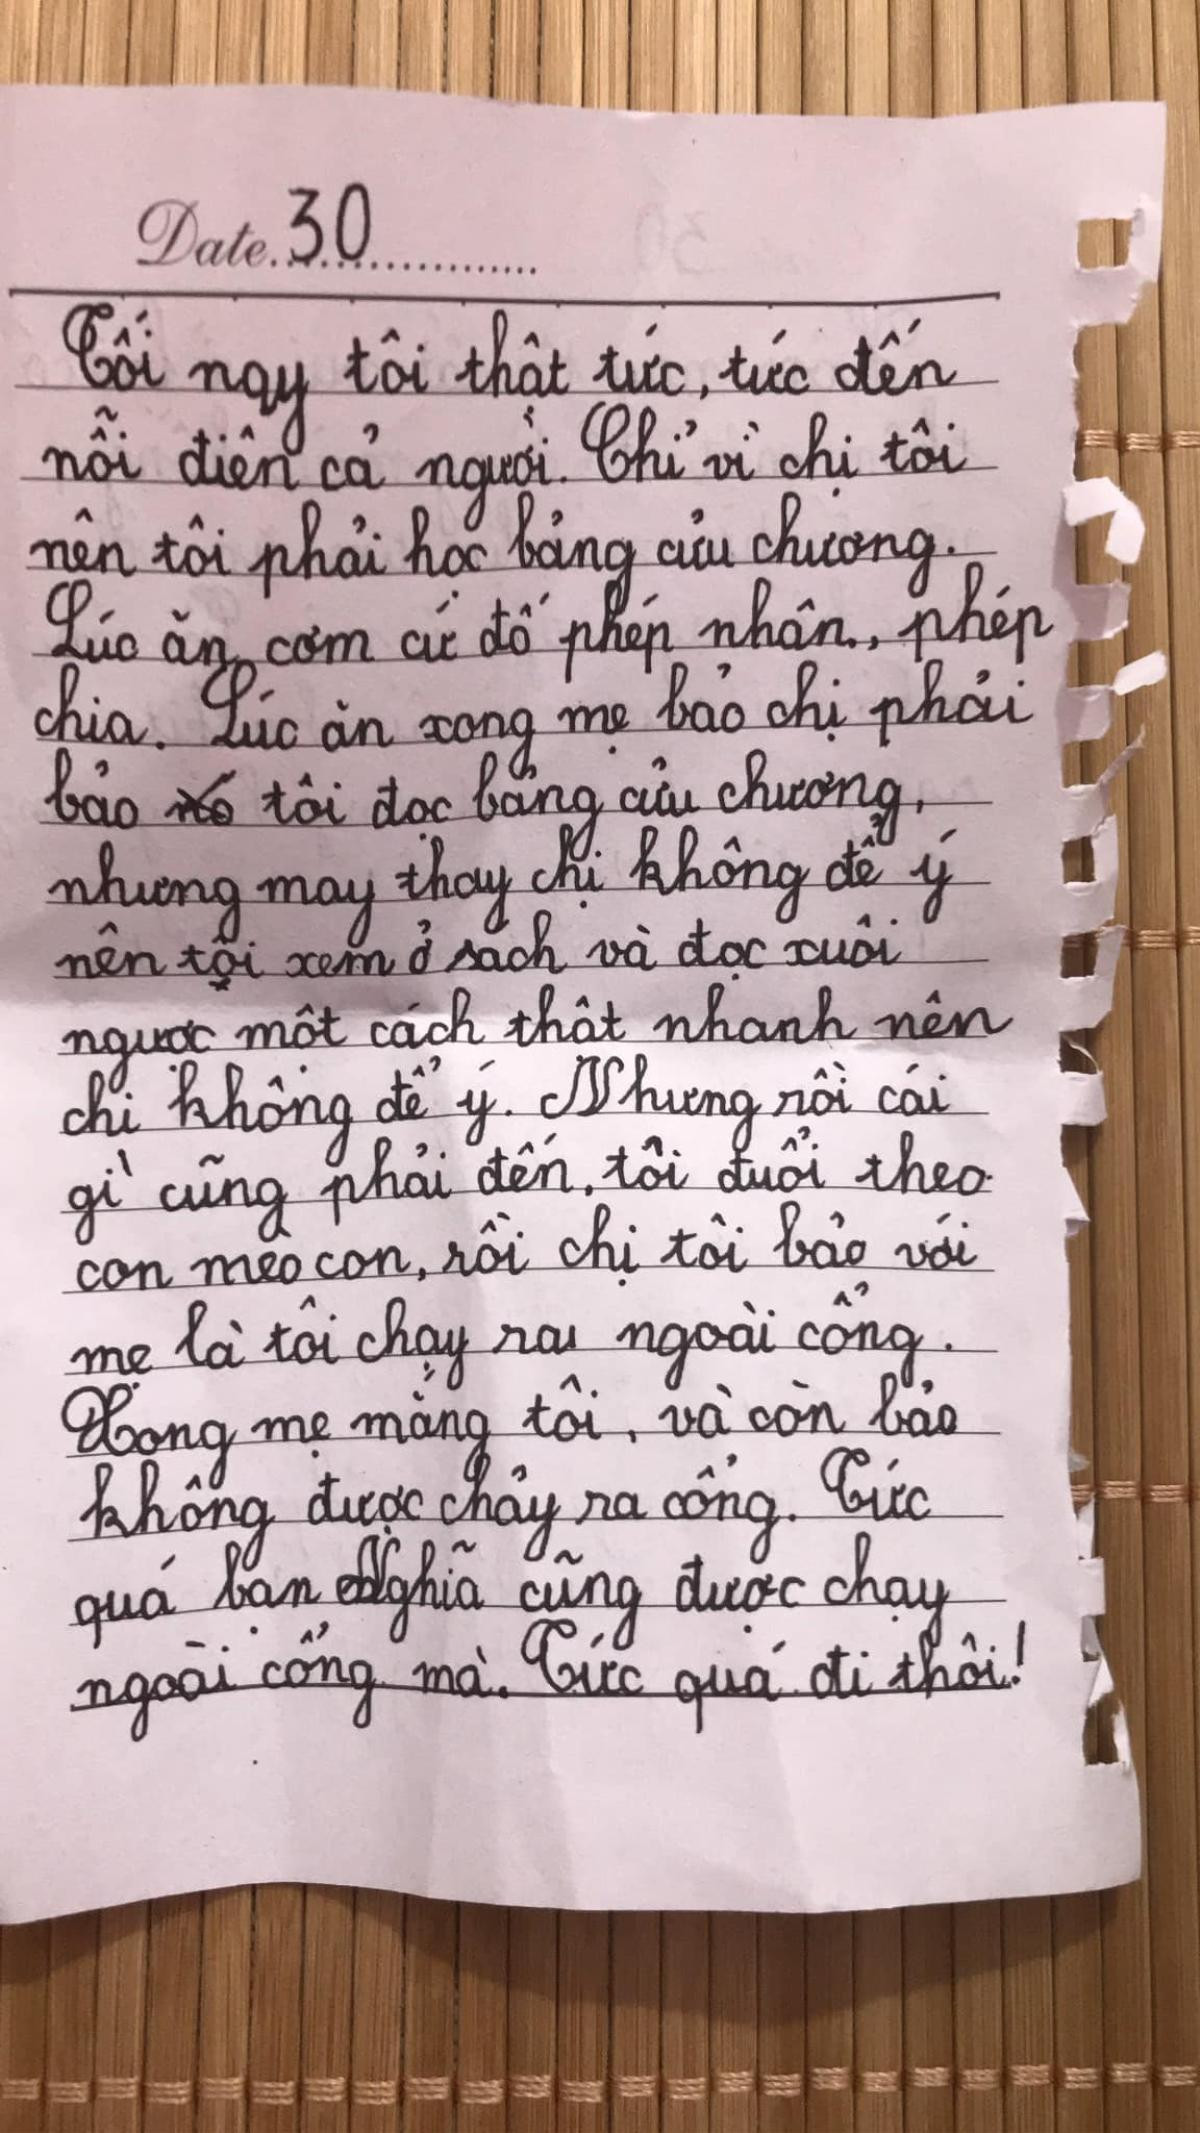 Date.30
Tối nay tôi thật tức, tức đến
nỗi điên cả người. Chỉ vì chị tôi
nên tôi phải học bảng cửu chương.
Lúc ăn cơm cứ đố phép nhân, phép
chia. Lúc ăn xong mẹ bảo chị phải
bảo tôi đọc bảng cửu chương,
nhưng may thay chị không để ý
nên tôi xem ở sách và đọc xuôi
ngược một cách thật nhanh nên
chị không để ý. Nhưng rồi cái
gì cũng phải đến, tôi đuổi theo
con mèo con, rồi chị tôi bảo với
mẹ là tôi chạy ra ngoài cổng.
Xong mẹ mắng tôi, và còn bảo
không được chảy ra cổng. Tức
quá bạn Nghĩa cũng được chạy
ngoài cổng mà. Tức quá đi thôi!